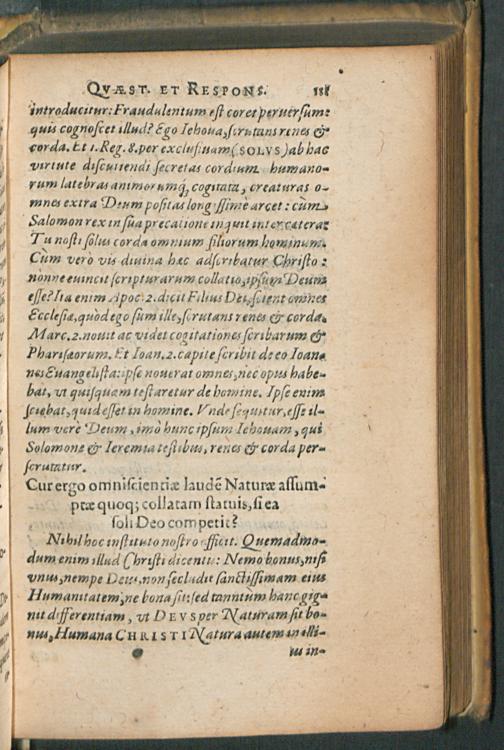 QVÆST. ET RESPONS.
introducitur: Fraudulentum est cor et peruersum:
quis cognoscet illud? Ego Iehoua, scrutans renes &
corda. Et 1. Reg. 8. per exclusiuam (SOLVS) ab hac
virtute discutiendi secretas cordium humano-
rum latebras animorumq; cogitata, creaturas o-
mnes extra Deum positas longissimè arcet: cùm
Salomon rex in sua precatione inquit inter cætera:
Tu nosti solus corda omnium filiorum hominum.
Cùm verò vis diuina hæc adscribatur Christo:
nonne euincit scripturarum collatio, ipsum Deum
esse? Ita enim Apoc. 2. dicit Filius Dei, scient omnes
Ecclesiæ, quòd ego sum ille, scrutans renes & corda.
Marc. 2. nouit ac videt cogitationes scribarum &
Pharisæorum. Et Ioan. 2. capite scribit de eo Ioan-
nes Euangelista: ipse nouerat omnes, nec opus habe-
bat, vt quisquam testaretur de homine. Ipse enim
sciebat, quid esset in homine. Vnde sequitur, esse il-
lum verè Deum, imò hunc ipsum Iehouam, qui
Solomone & Ieremia testibus, renes & corda per-
scrutatur.
Cur ergo omniscientiæ laudē Naturæ assum-
ptæ quoq; collatam statuis, si ea
soli Deo competit?
Nihil hoc instituto nostro officit. Quemadmo-
dum enim illud Christi dicentis: Nemo bonus, nisi
vnus, nempe Deus, non secludit sanctissimam eius
Humanitatem, ne bona sit, sed tanntùm hanc gig-
nit differentiam, vt DEVS per Naturam sit bo-
nus, Humana CHRISTI Natura autem in illi-
us in-